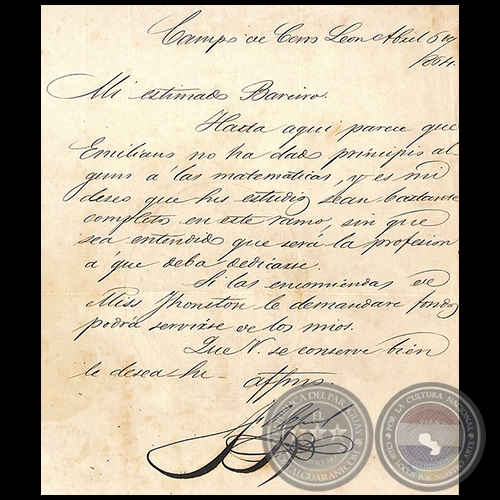 Campo de Cerro Leon Abril 6 de
1864.
Mi estimado Bareiro.
Hasta aqui parece que
Emiliano no ha dado principio al-
guno á las matemáticas, y es mi
deseo que his estudios sean bastante
completos en este ramo, sin que
sea entendido que será la profesion
á que deba dedicarse.
Si las encomiendas de
Miss Jhonston le demandare fondos
podrá servirse de los mios.
Que V. se conserve bien
le desea su affmo.